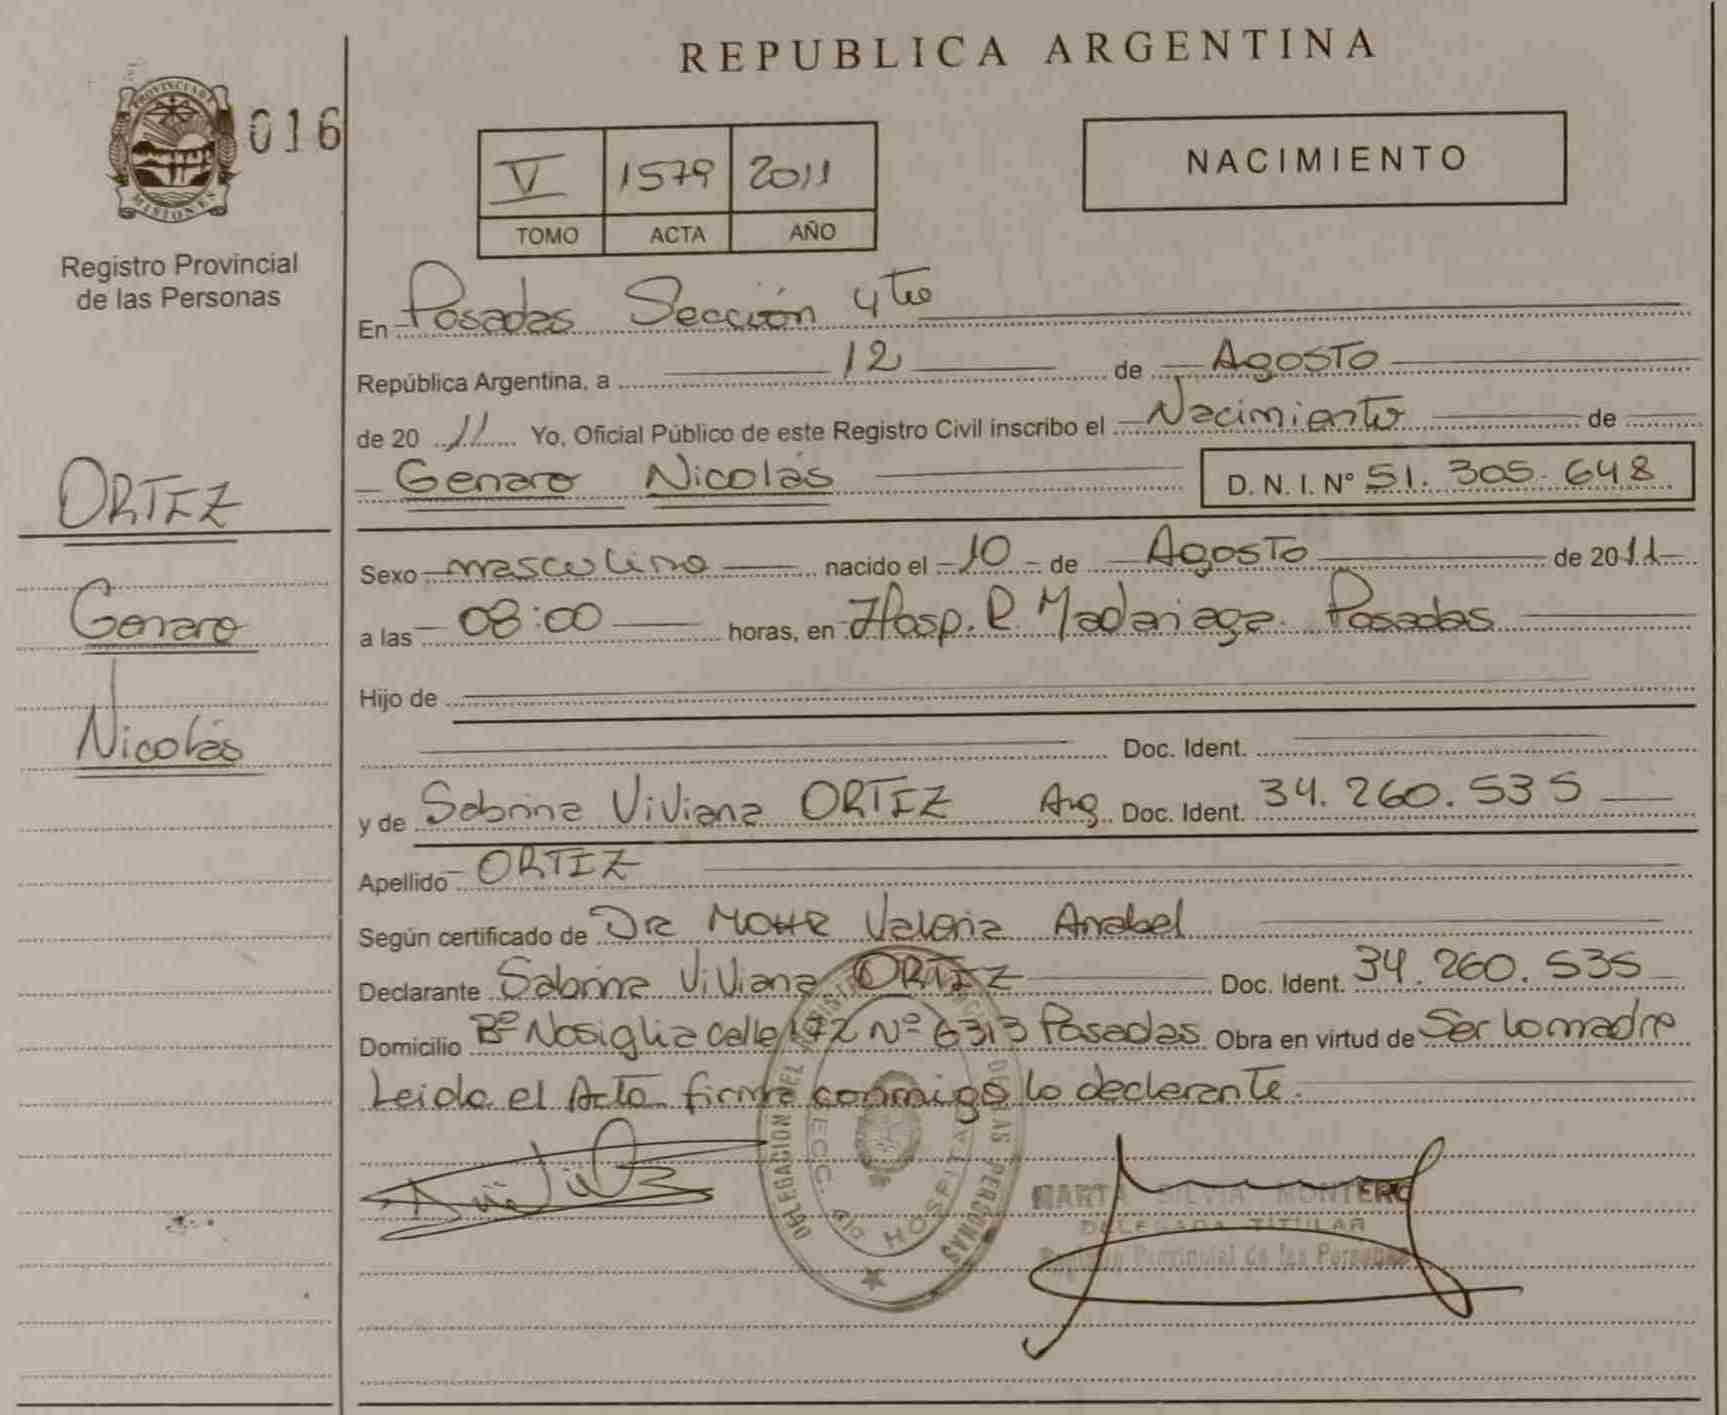 REPUBLICA ARGENTINA
PROVINCIA DE
MISIONES
016
Registro Provincial
de las Personas
V 1579 2011
TOMO ACTA AÑO
NACIMIENTO
En Posadas Sección 4ta
República Argentina, a 12 de Agosto
de 2011 Yo, Oficial Público de este Registro Civil inscribo el Nacimiento de
Genaro Nicolás D. N. I. Nº 51.305.648
ORTIZ
Genaro
Nicolás
Sexo masculino nacido el 10 de Agosto de 2011
a las 08:00 horas, en Hosp. R. Madariaga. Posadas
Hijo de
Doc. Ident.
y de Sabrina Viviana ORTIZ Arg. Doc. Ident. 34.260.535
Apellido ORTIZ
Según certificado de Dra Valeria Anabel
Declarante Sabrina Viviana ORTIZ Doc. Ident. 34.260.535
Domicilio Bº Nosiglia calle 172 Nº 6313 Posadas Obra en virtud de Ser la madre
Leida el Acta firma conmigo la declarante.
DELEGACION DEL PERSONAS
SECC. 4ta HOSPITAL
MARTA SILVIA MONTERO
DELEGADA TITULAR
Registro Provincial de las Personas